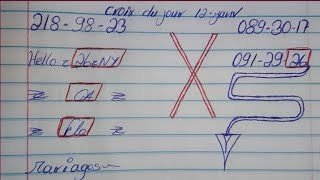 Croix du jour 12-janv
218-98-23
089-30-17
Hello z 26 z NY
091-29 26
z GA z
z Flo z
Mariages